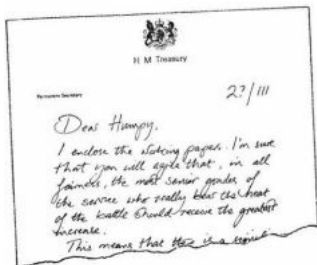 H M Treasury
Permanent Secretary
23/III
Dear Humpy,
I enclose the working papers. I'm sure
that you will agree that, in all
fairness, the most senior grades of
the service who really bear the heat
of the battle should receive the greatest
increase.
This means that